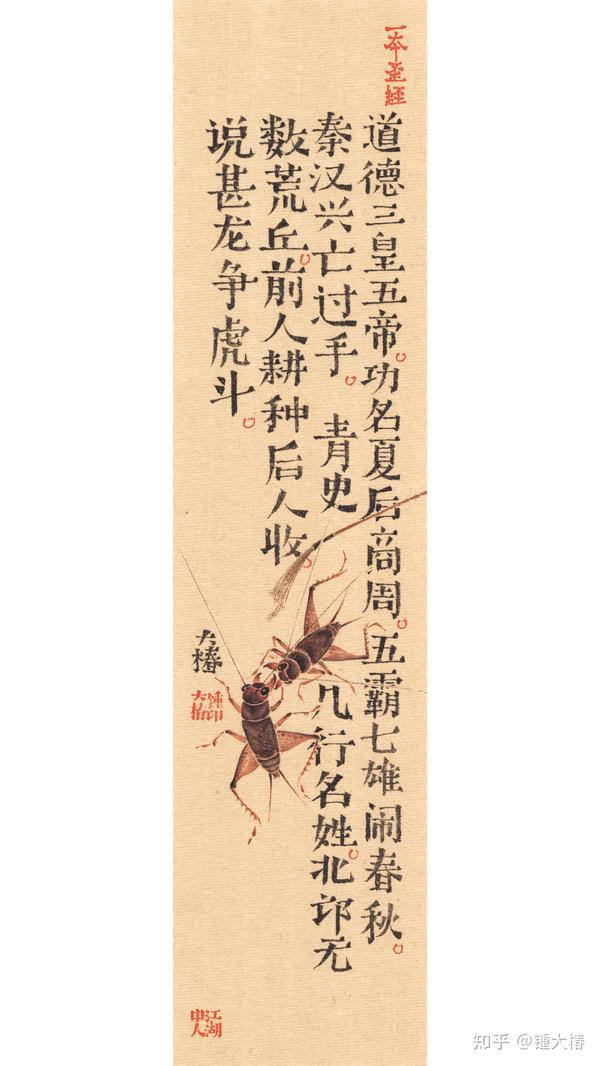 一本歪经
道德三皇五帝。功名夏后商周。五霸七雄闹春秋。
秦汉兴亡过手。青史几行名姓。北邙无
数荒丘。前人耕种后人收。
说甚龙争虎斗。
大椿
锺大椿印
江湖中人
知乎 @锺大椿